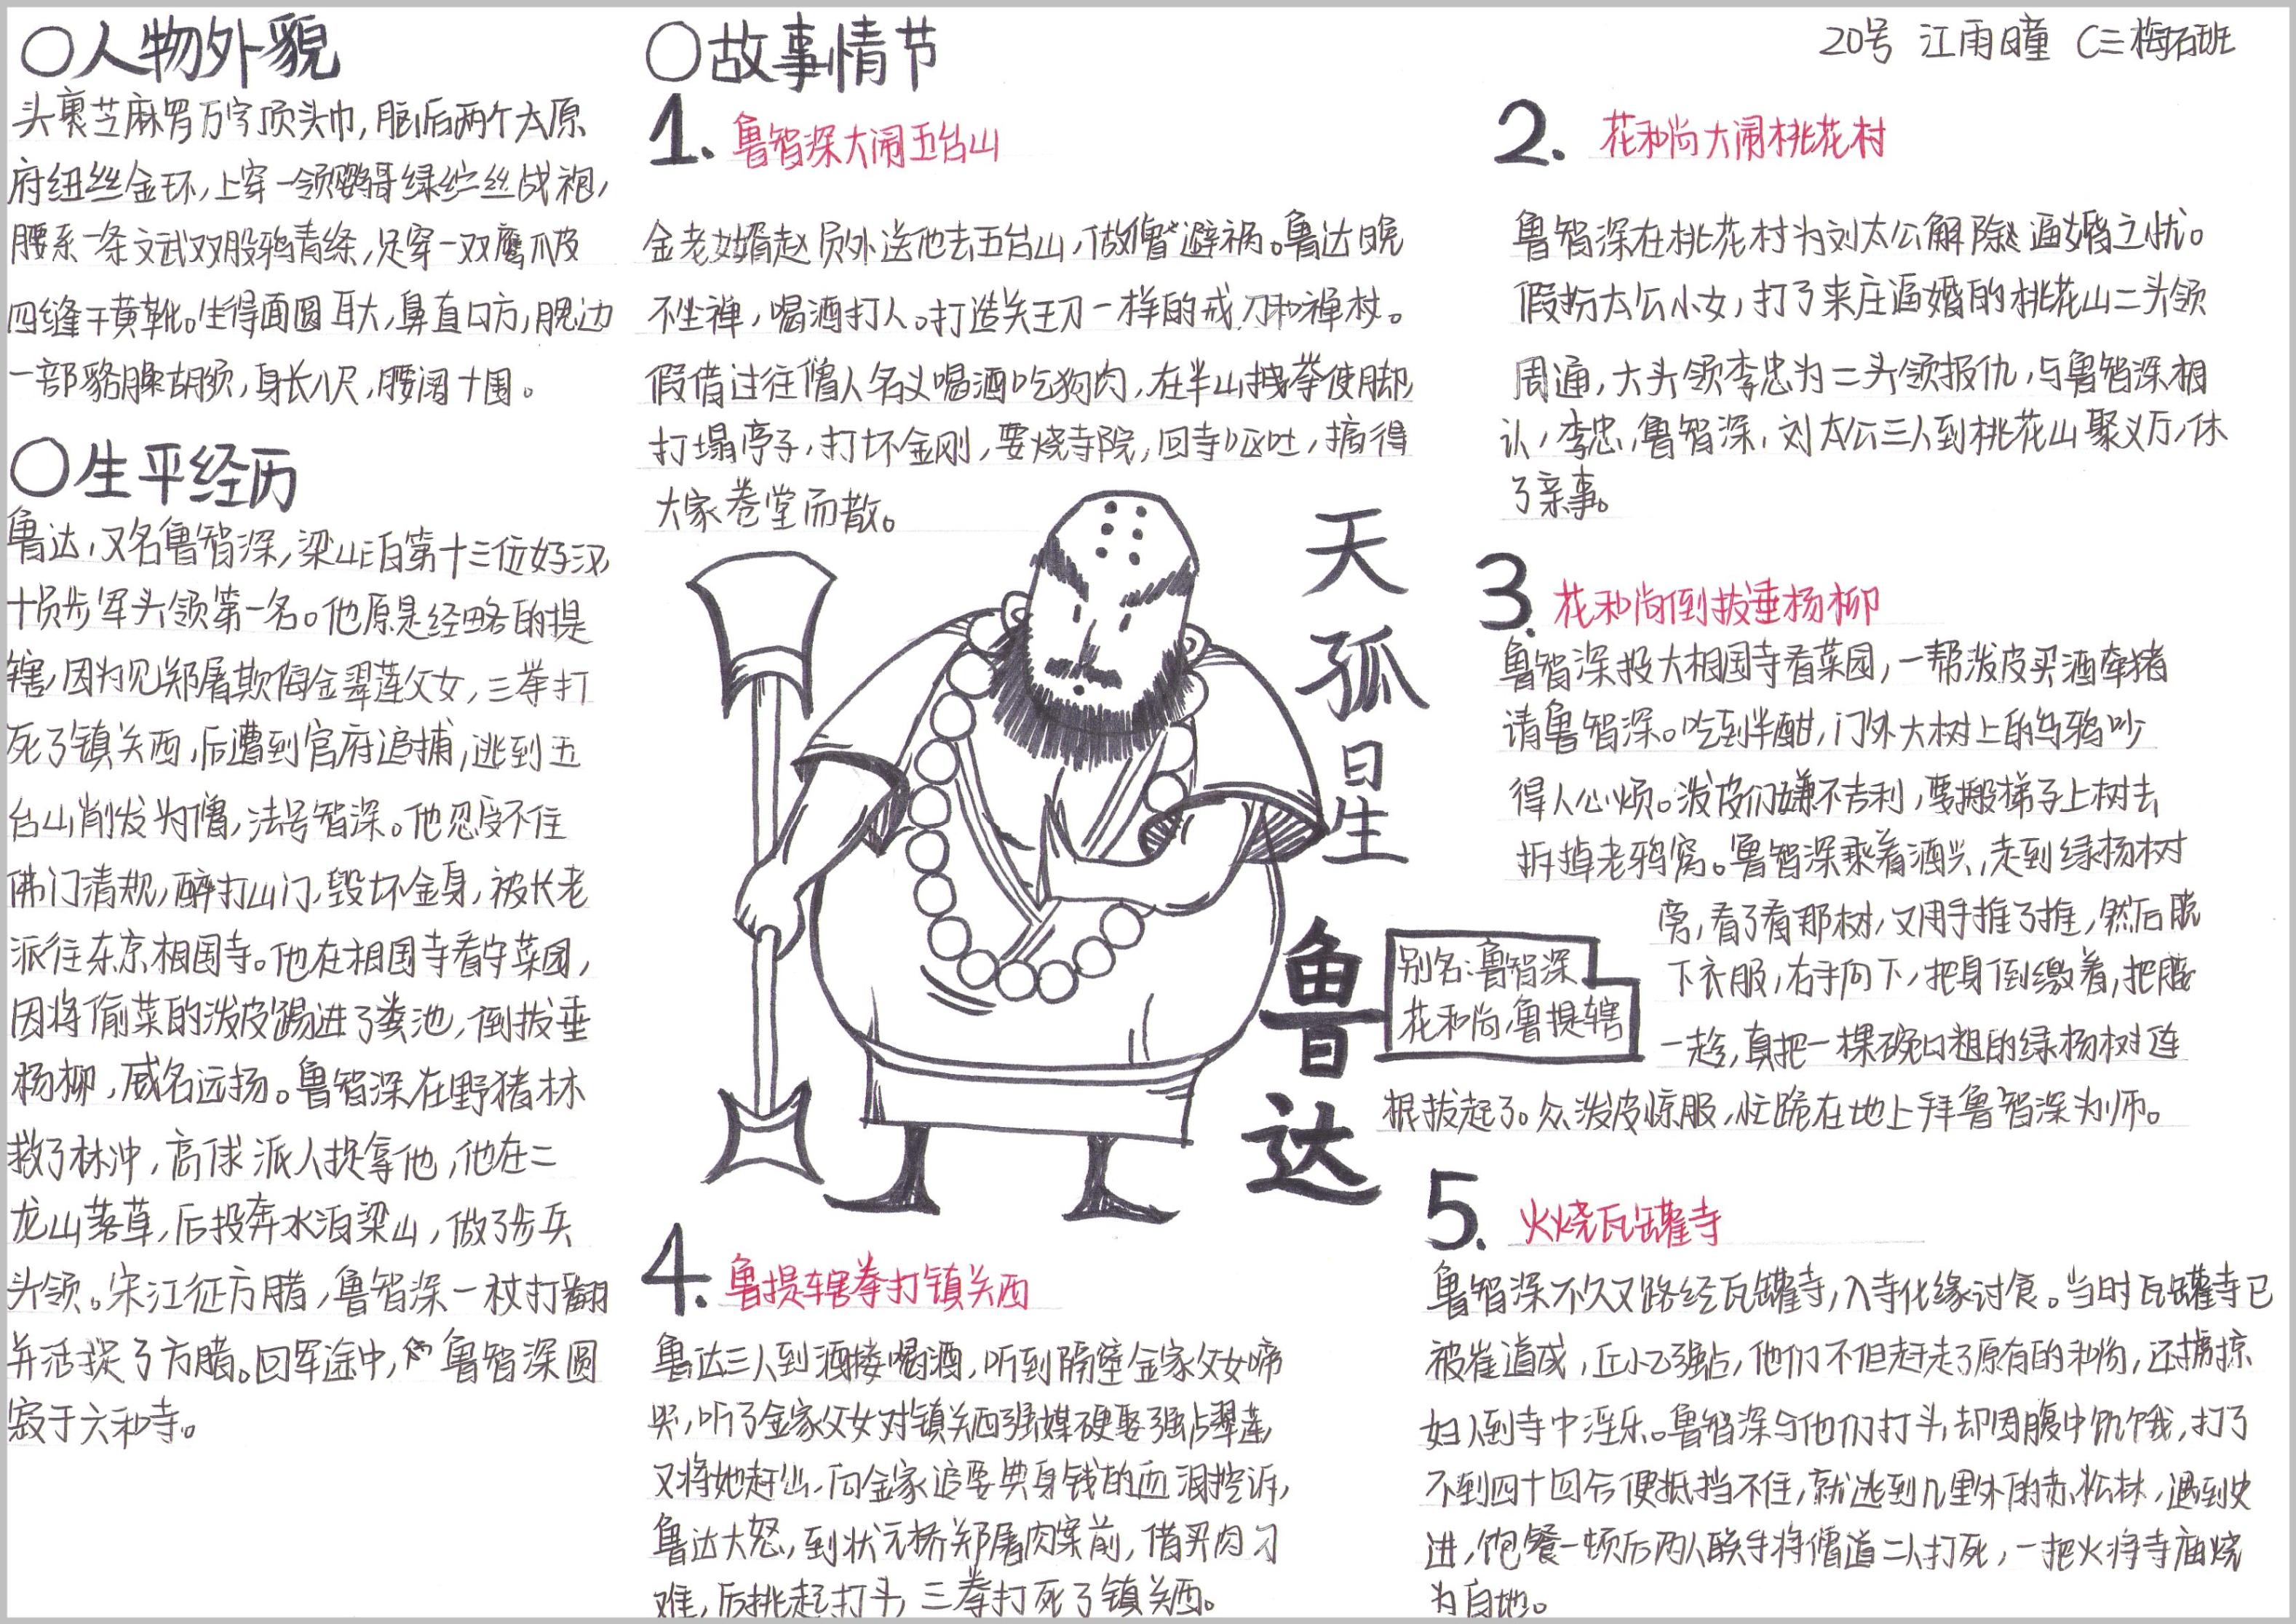 20号 江雨曈 C三梅石班
○人物外貌
头裹芝麻罗万字顶头巾,脑后两个太原
府纽丝金环,上穿一领鹦哥绿纻丝战袍,
腰系一条文武双股鸦青绦,足穿一双鹰爪皮
四缝干黄靴。生得面圆耳大,鼻直口方,腮边
一部貉臊胡须,身长八尺,腰阔十围。
○生平经历
鲁达,又名鲁智深,梁山泊第十三位好汉,
十员步军头领第一名。他原是经略的提
辖,因为见郑屠欺侮金翠莲父女,三拳打
死了镇关西,后遭到官府追捕,逃到五
台山削发为僧,法号智深。他忍受不住
佛门清规,醉打山门,毁坏金身,被长老
派往东京相国寺。他在相国寺看守菜园,
因将偷菜的泼皮踢进了粪池,倒拔垂
杨柳,威名远扬。鲁智深在野猪林
救了林冲,高俅派人捉拿他,他在二
龙山落草,后投奔水泊梁山,做了步兵
头领。宋江征方腊,鲁智深一杖打翻
并活捉了方腊。回军途中,鲁智深圆
寂于六和寺。
○故事情节
1. 鲁智深大闹五台山
金老女婿赵员外送他去五台山,做僧避祸。鲁达晚
不坐禅,喝酒打人。打造关王刀一样的戒刀和禅杖。
假借过往僧人名义喝酒吃狗肉,在半山拽拳使脚,
打塌亭子,打坏金刚,要烧寺院,回寺呕吐,搞得
大家卷堂而散。
2. 花和尚大闹桃花村
鲁智深在桃花村为刘太公解除逼婚之忧。
假扮太公小女,打了来庄逼婚的桃花山二头领
周通,大头领李忠为二头领报仇,与鲁智深相
认,李忠,鲁智深,刘太公三人到桃花山聚义厅,休
了亲事。
3. 花和尚倒拔垂杨柳
鲁智深投大相国寺看菜园,一帮泼皮买酒牵猪
请鲁智深。吃到半酣,门外大树上的乌鸦吵
得人心烦。泼皮们嫌不吉利,要搬梯子上树去
拆掉老鸦窝。鲁智深乘着酒兴,走到绿杨树
旁,看了看那树,又用手推了推,然后脱
下衣服,右手向下,把身倒缴着,把腰
一趁,真把一棵碗口粗的绿杨树连
根拔起了。众泼皮惊服,忙跪在地上拜鲁智深为师。
天孤星
鲁达
别名:鲁智深
花和尚,鲁提辖
4. 鲁提辖拳打镇关西
鲁达三人到酒楼喝酒,听到隔壁金家父女啼
哭,听了金家父女对镇关西强媒硬娶强占翠莲,
又将她赶出,向金家追要典身钱的血泪控诉,
鲁达大怒,到状元桥郑屠肉案前,借买肉刁
难,后挑起打斗,三拳打死了镇关西。
5. 火烧瓦罐寺
鲁智深不久又路经瓦罐寺,入寺化缘讨食。当时瓦罐寺已
被崔道成,丘小乙强占,他们不但赶走了原有的和尚,还掳掠
妇人到寺中淫乐。鲁智深与他们打斗,却因腹中饥饿,打了
不到四十回合便抵挡不住,就逃到几里外的赤松林,遇到史
进,饱餐一顿后两人联手将僧道二人打死,一把火将寺庙烧
为白地。